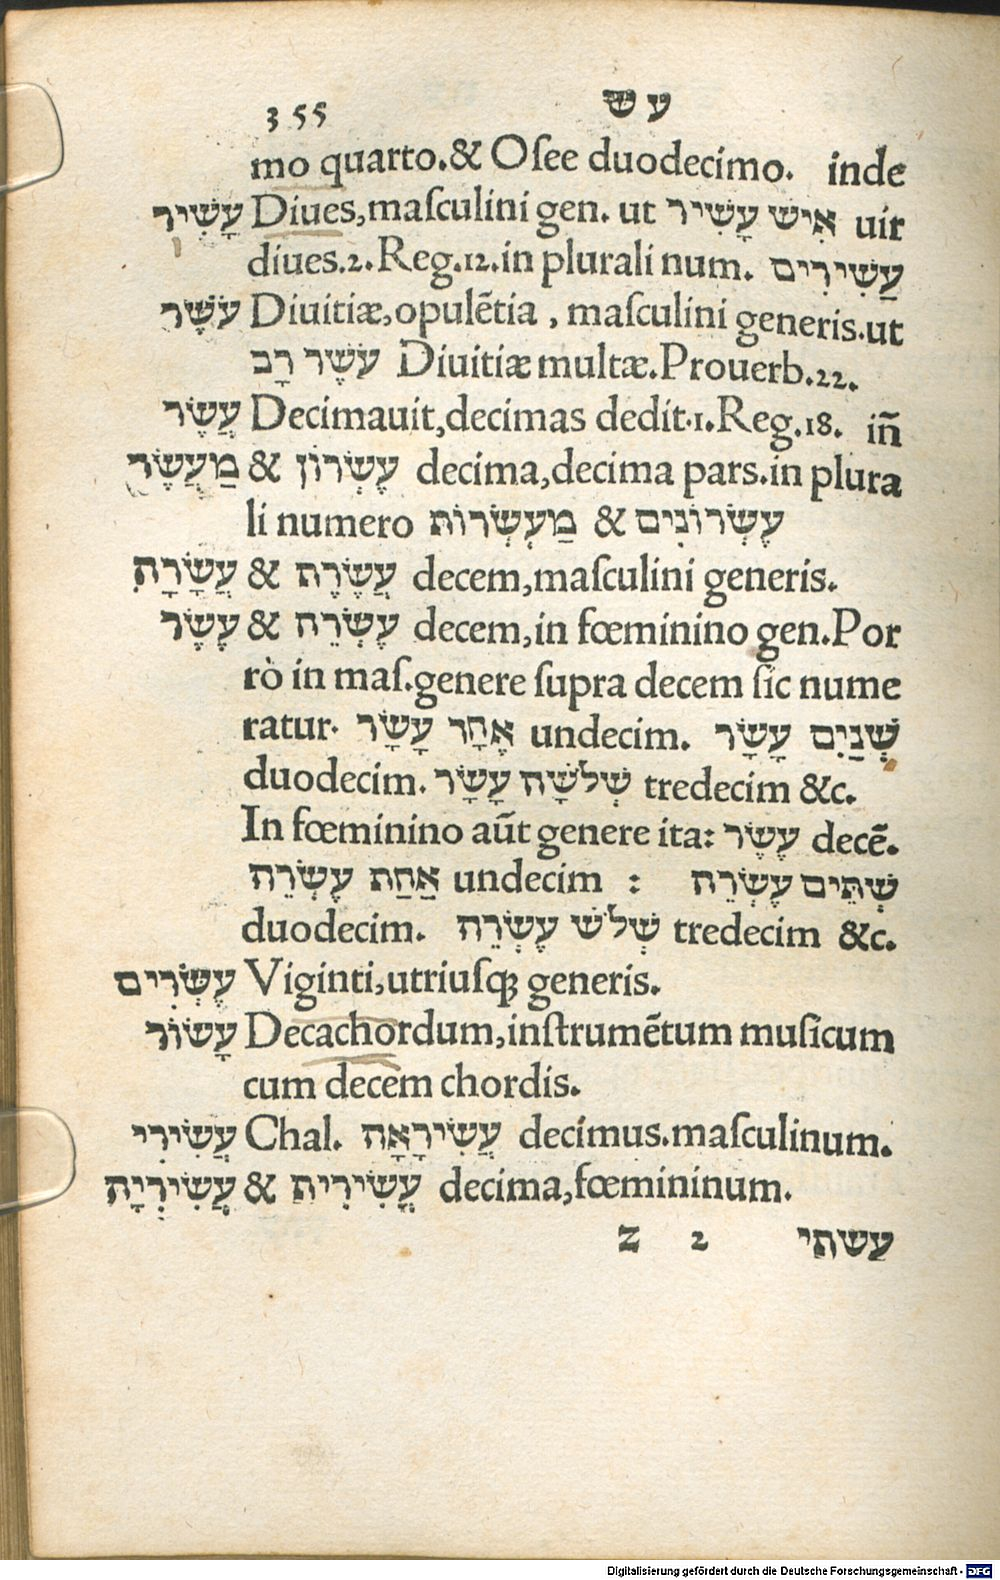 355 עש
mo quarto.& Oſee duodecimo. inde
עָשִׁיר Diues,maſculini gen. ut אִישׁ עָשִׁיר uir
diues.2.Reg.12.in plurali num. עֲשִׁירִים
עֹשֶׁר Diuitiæ,opulētia , maſculini generis.ut
עֹשֶׁר רָב Diuitiæ multæ.Prouerb.22.
עֲשַׂר Decimauit,decimas dedit.1.Reg.18. iñ
מַעֲשֵׂר & עֶשְׂרוֹן decima,decima pars.in plura
li numero מַעְשְׂרוֹת & עֶשְׂרוֹנִים
עֲשָׂרָה & עֲשֶׂרֶת decem,maſculini generis.
עֶשֶׂר & עֶשְׂרֵה decem,in fœminino gen.Por
rò in maſ.genere ſupra decem ſic nume
ratur. אֶחָר עָשָׂר undecim. שְׁנַיִם עָשָׂר
duodecim. שְׁלֹשָׁה עָשָׂר tredecim &c.
In fœminino aūt genere ita: עֶשֶׂר decē.
אַחַת עֶשְׂרֵה undecim : שְׁתַּיִם עֶשְׂרֵה
duodecim. שְׁלֹשׁ עֶשְׂרֵה tredecim &c.
עֶשְׂרִים Viginti,utriuſqꝫ generis.
עָשׂוֹר Decachordum,inſtrumētum muſicum
cum decem chordis.
עֲשִׂירִי Chal. עֲשִׂירָאָה decimus.maſculinum.
עֲשִׂירִיָה & עֲשִׂירִית decima,fœmininum.
Z 2 עשתי
Digitalisierung gefördert durch die Deutsche Forschungsgemeinschaft - DFG